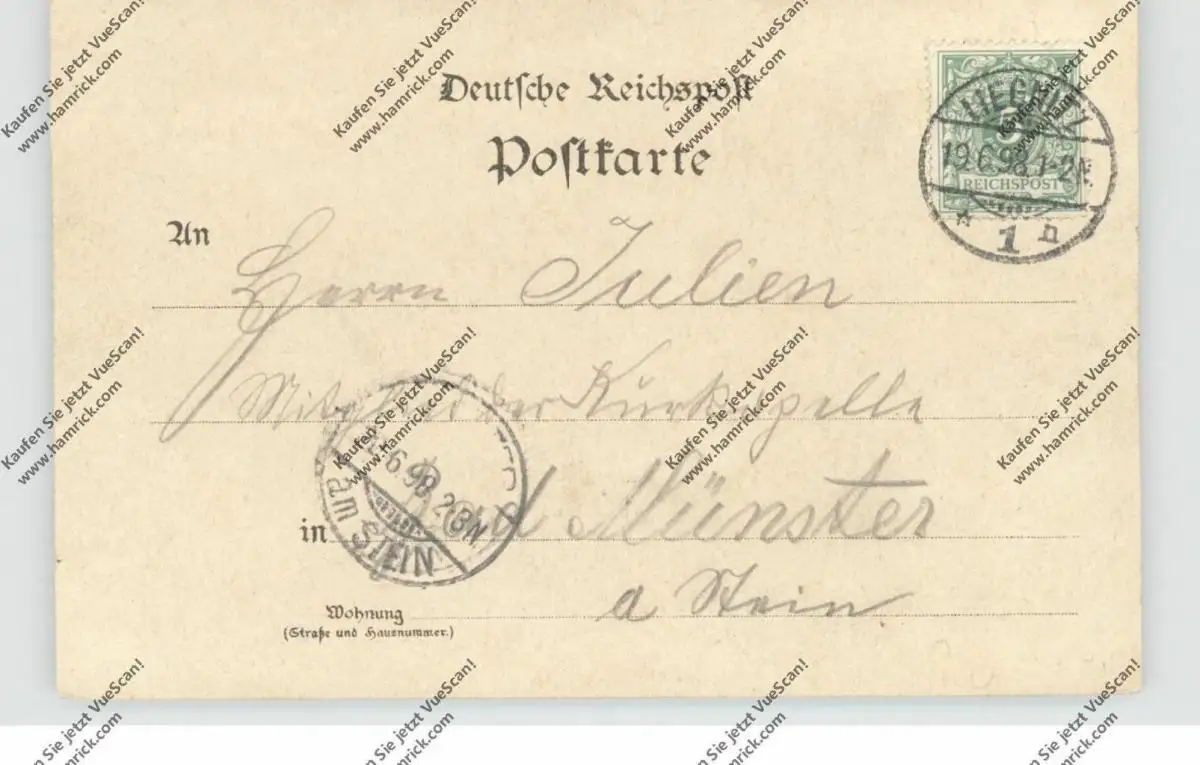 Deutsche Reichspost
Postkarte
LIEGNITZ
19.6.98.1-2N.
1
REICHSPOST
5
An
Herrn Julien
Mitglied der Kurkapelle
in Bad Münster
a Stein
am STEIN
6 98 2-3N
Wohnung
(Straße und Hausnummer.)
Kaufen Sie jetzt VueScan!
www.hamrick.com